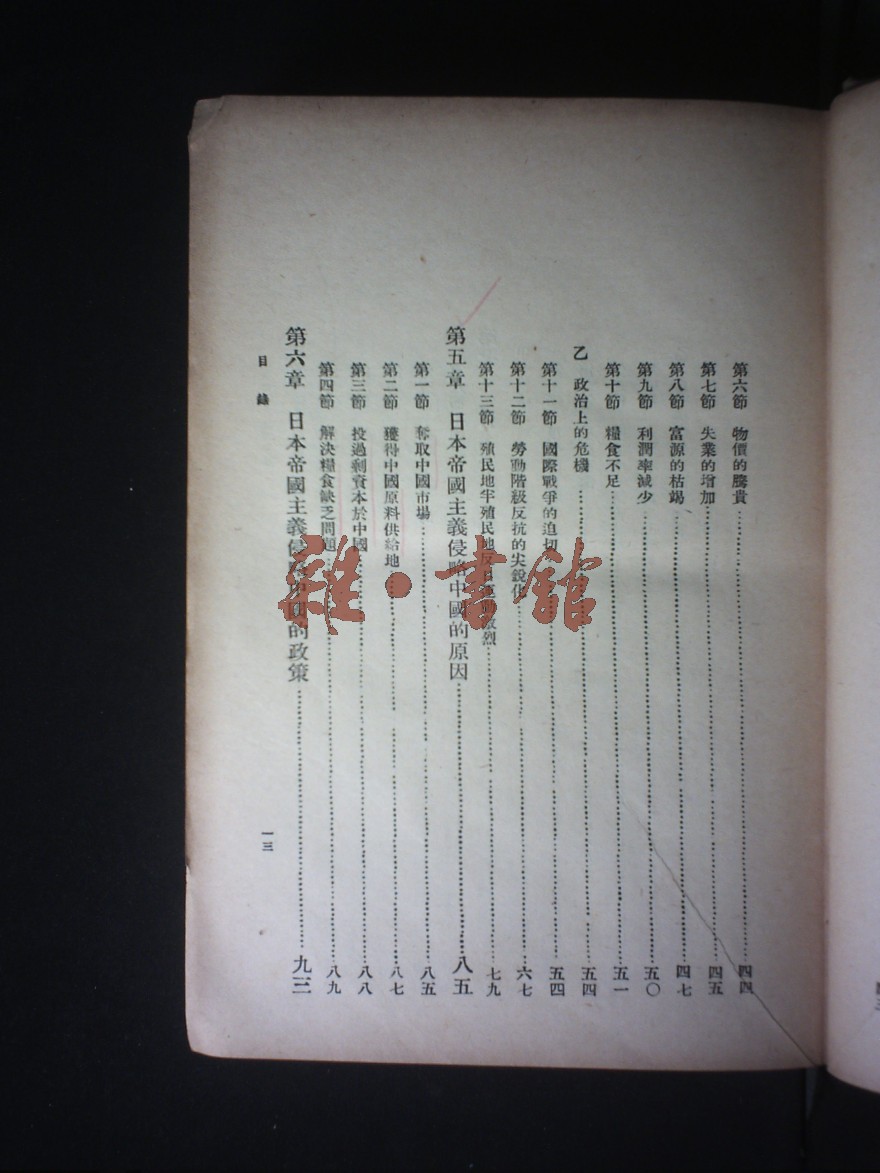 第六節 物價的騰貴……四四
第七節 失業的增加……四五
第八節 富源的枯竭……四七
第九節 利潤率減少……五〇
第十節 糧食不足……五一
乙 政治上的危機……五四
第十一節 國際戰爭的迫切……五四
第十二節 勞動階級反抗的尖銳化……六七
第十三節 殖民地半殖民地反日運動激烈……七九
第五章 日本帝國主義侵略中國的原因……八五
第一節 奪取中國市場……八五
第二節 獲得中國原料供給地……八七
第三節 投過剩資本於中國……八八
第四節 解決糧食缺乏問題……八九
第六章 日本帝國主義侵略中國的政策……九三
目錄 一三
雜·書館